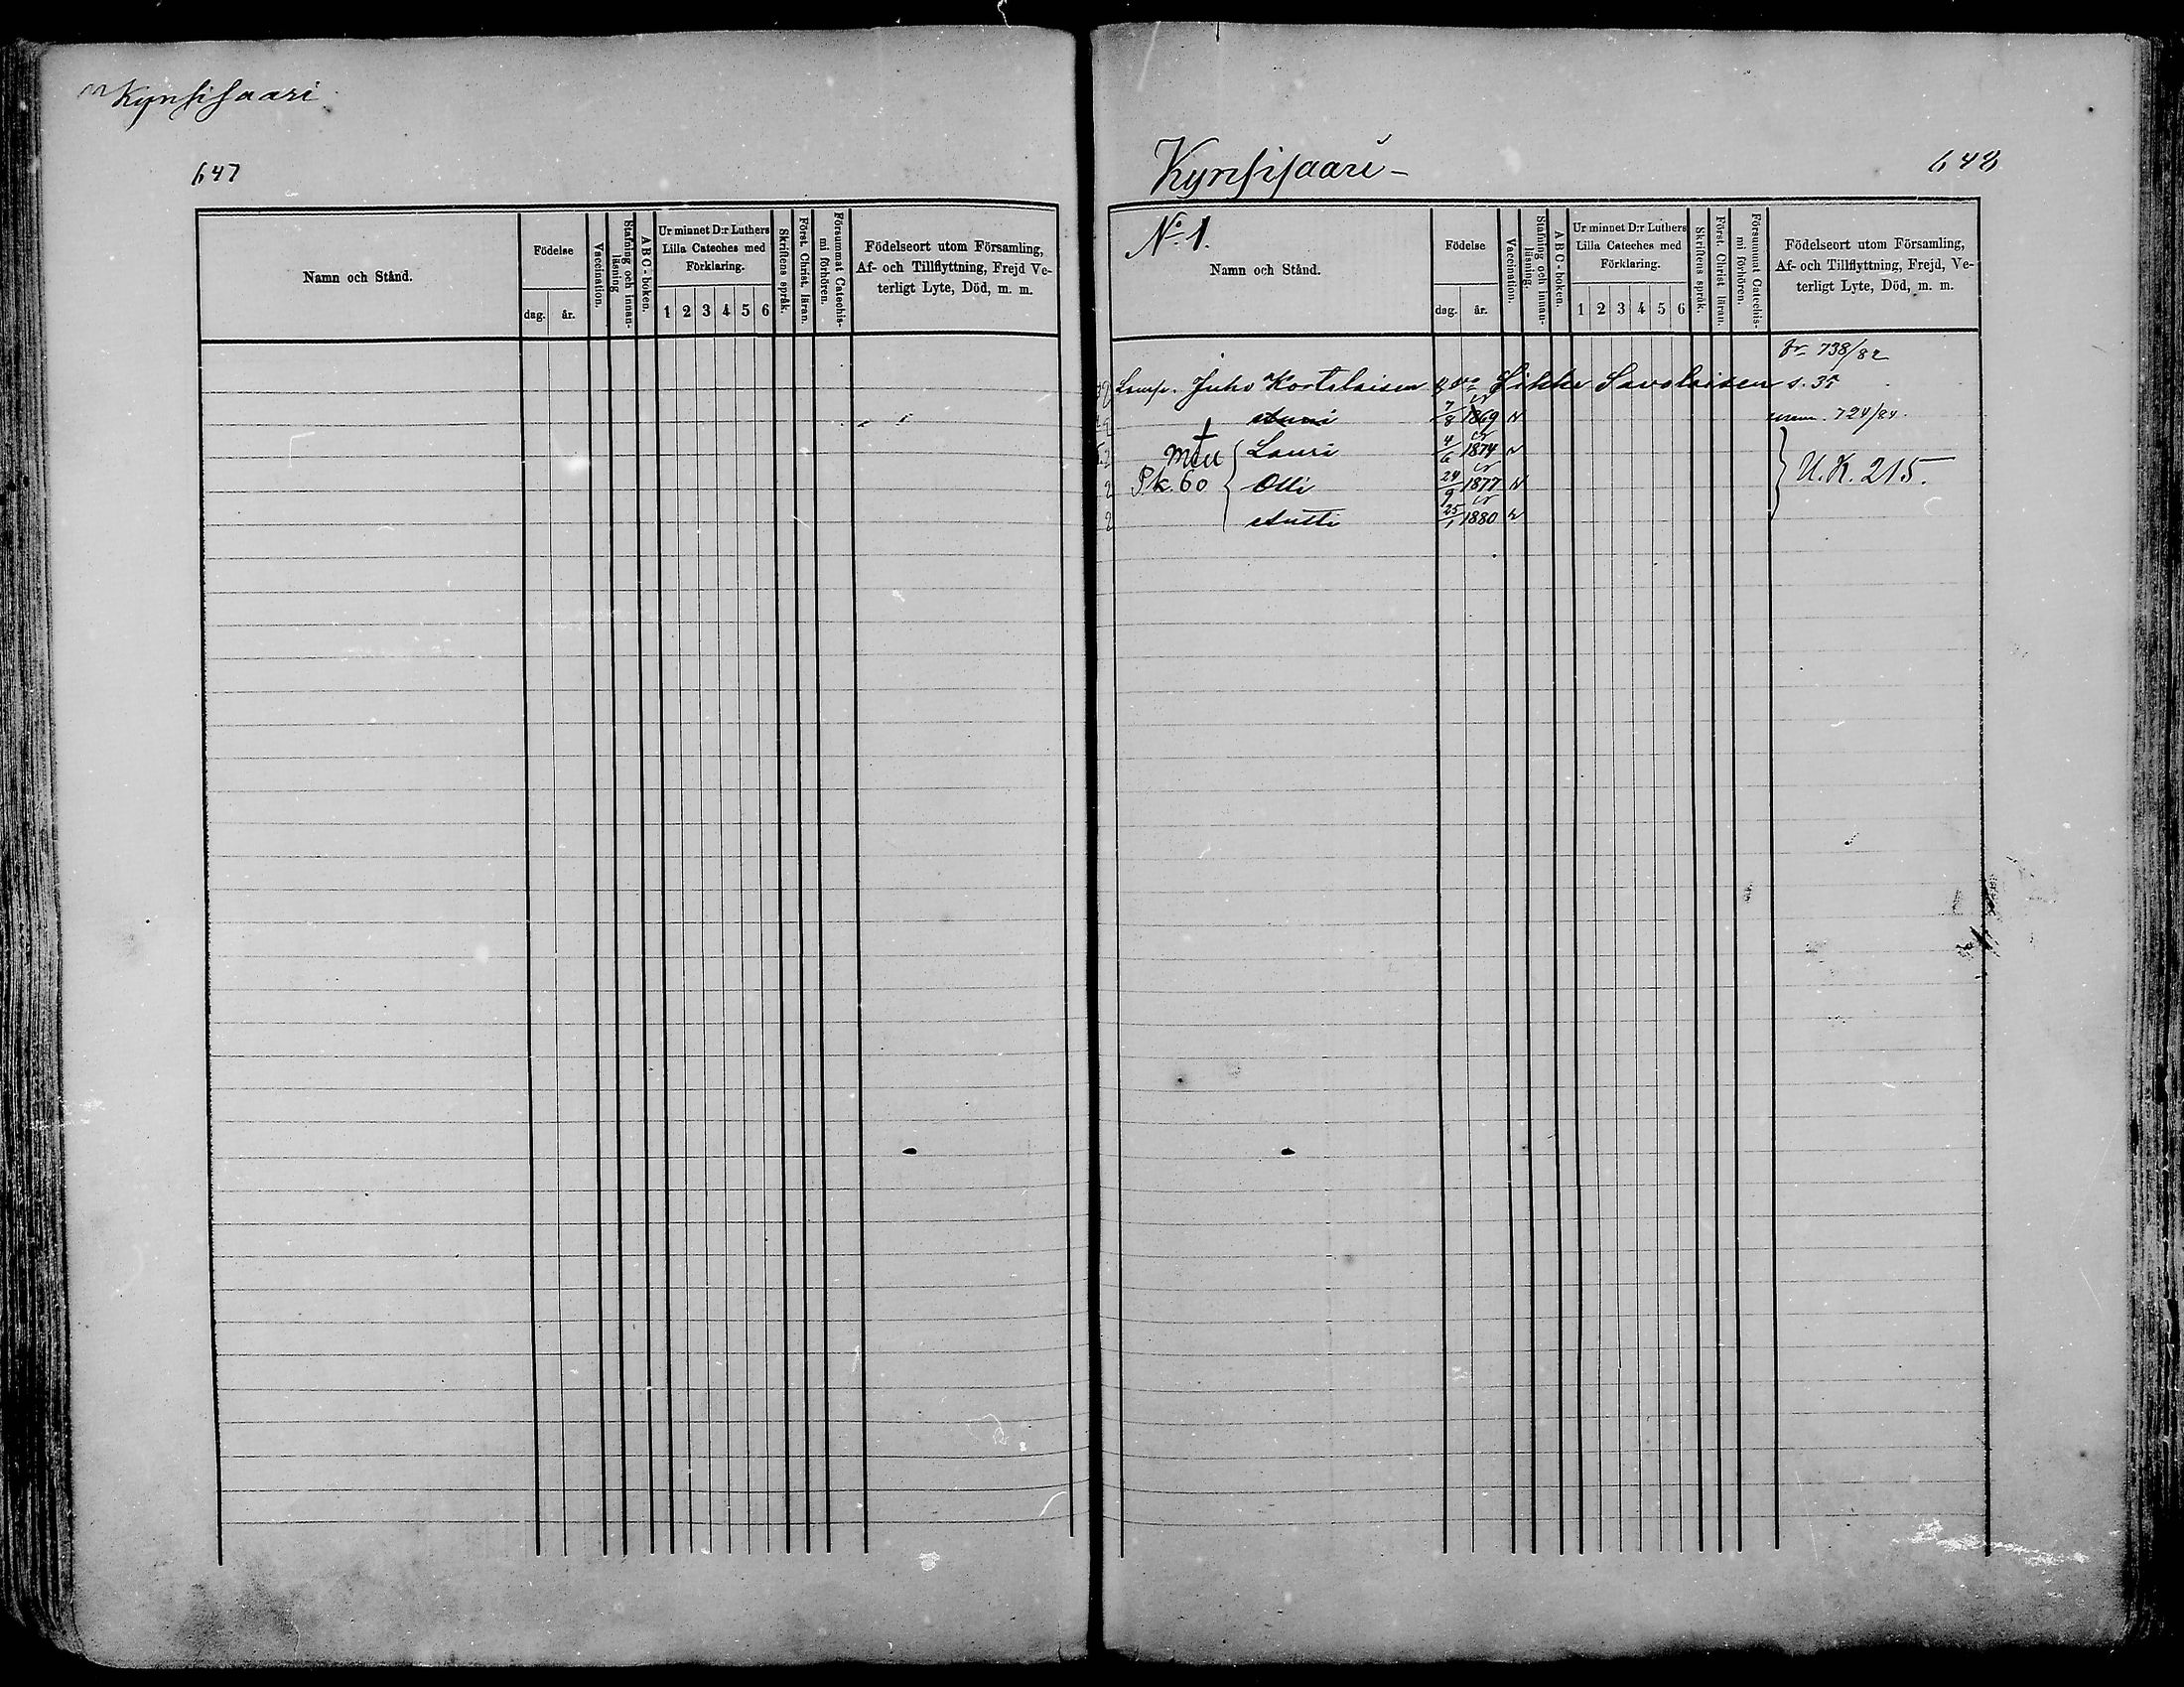 Kynsisaari
647
Namn och Stånd.
Födelse
dag. år.
Vaccination.
Stafning och innan-läsning
A B C - boken.
Ur minnet D:r Luthers
Lilla Cateches med
Förklaring.
1 2 3 4 5 6
Skriftens språk.
Först. Christ. läran.
Försummat Catechis-mi förhören.
Födelseort utom Församling,
Af- och Tillflyttning, Frejd Ve-
terligt Lyte, Död, m. m.
Kynsisaari -
648
No 1.
Namn och Stånd.
Födelse
dag. år.
Vaccination.
Stafning och innan-läsning.
A B C - boken.
Ur minnet D:r Luthers
Lilla Cateches med
Förklaring.
1 2 3 4 5 6
Skriftens språk.
Först. Christ läran.
Försummat Catechis-mi förhören.
Födelseort utom Församling,
Af- och Tillflyttning, Frejd, Ve-
terligt Lyte, Död, m. m.
fr. 738/82
Juho Kortelaisen Likka Savolaisen s. 35
Anni 7/8 1869 724/84.
Lauri 4/6 1874
Pk. 60 Olli 24/9 1877 U.K. 215.
Antti 25/1 1880